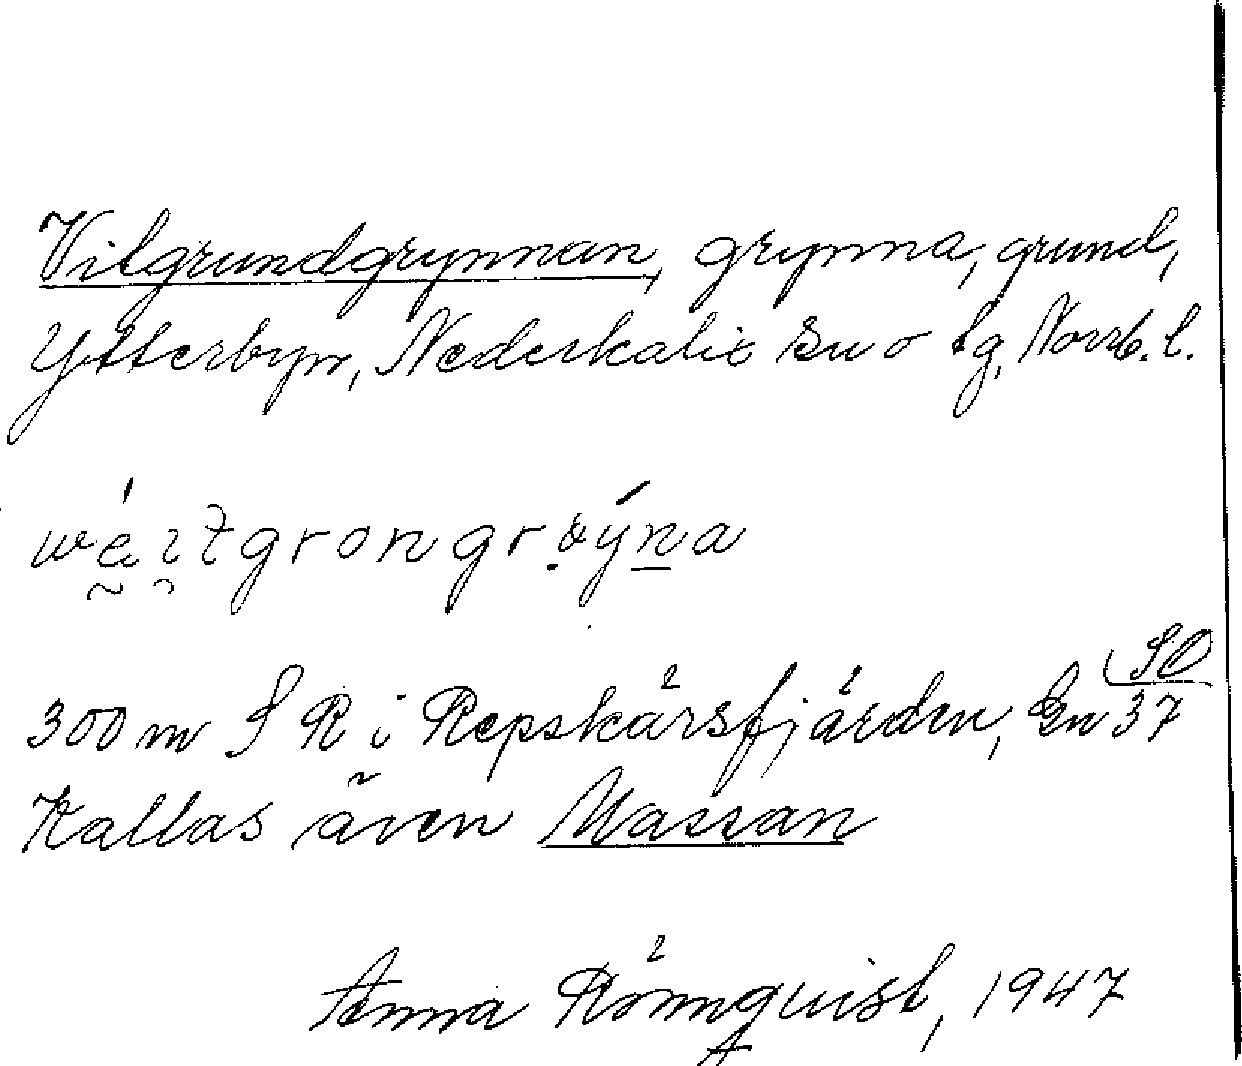 Vitgrundgrynnan, grynna, grund,
Ytterbyn, Nederkalix sn o tg, Norrb. l.
300 m S R i Repskärsfjärden, En
SO
37
Kallas även Massan
Anna Rönnquist, 1947